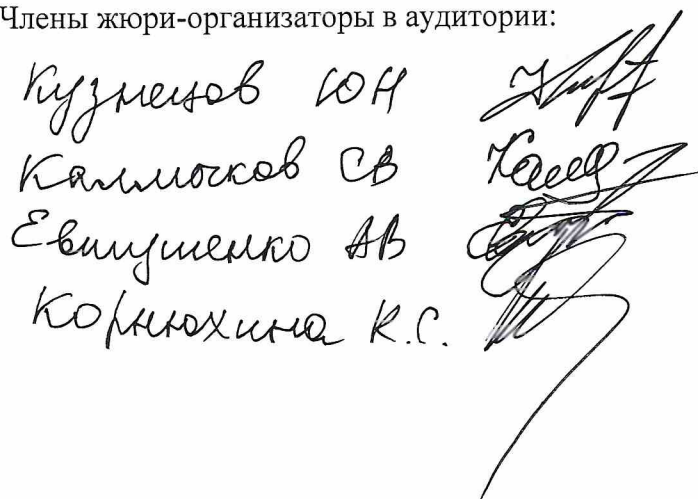 Члены жюри-организаторы в аудитории:
Кузнецов ЮН
Калмычков СВ
Евтушенко АВ
Корнюхина К.С.